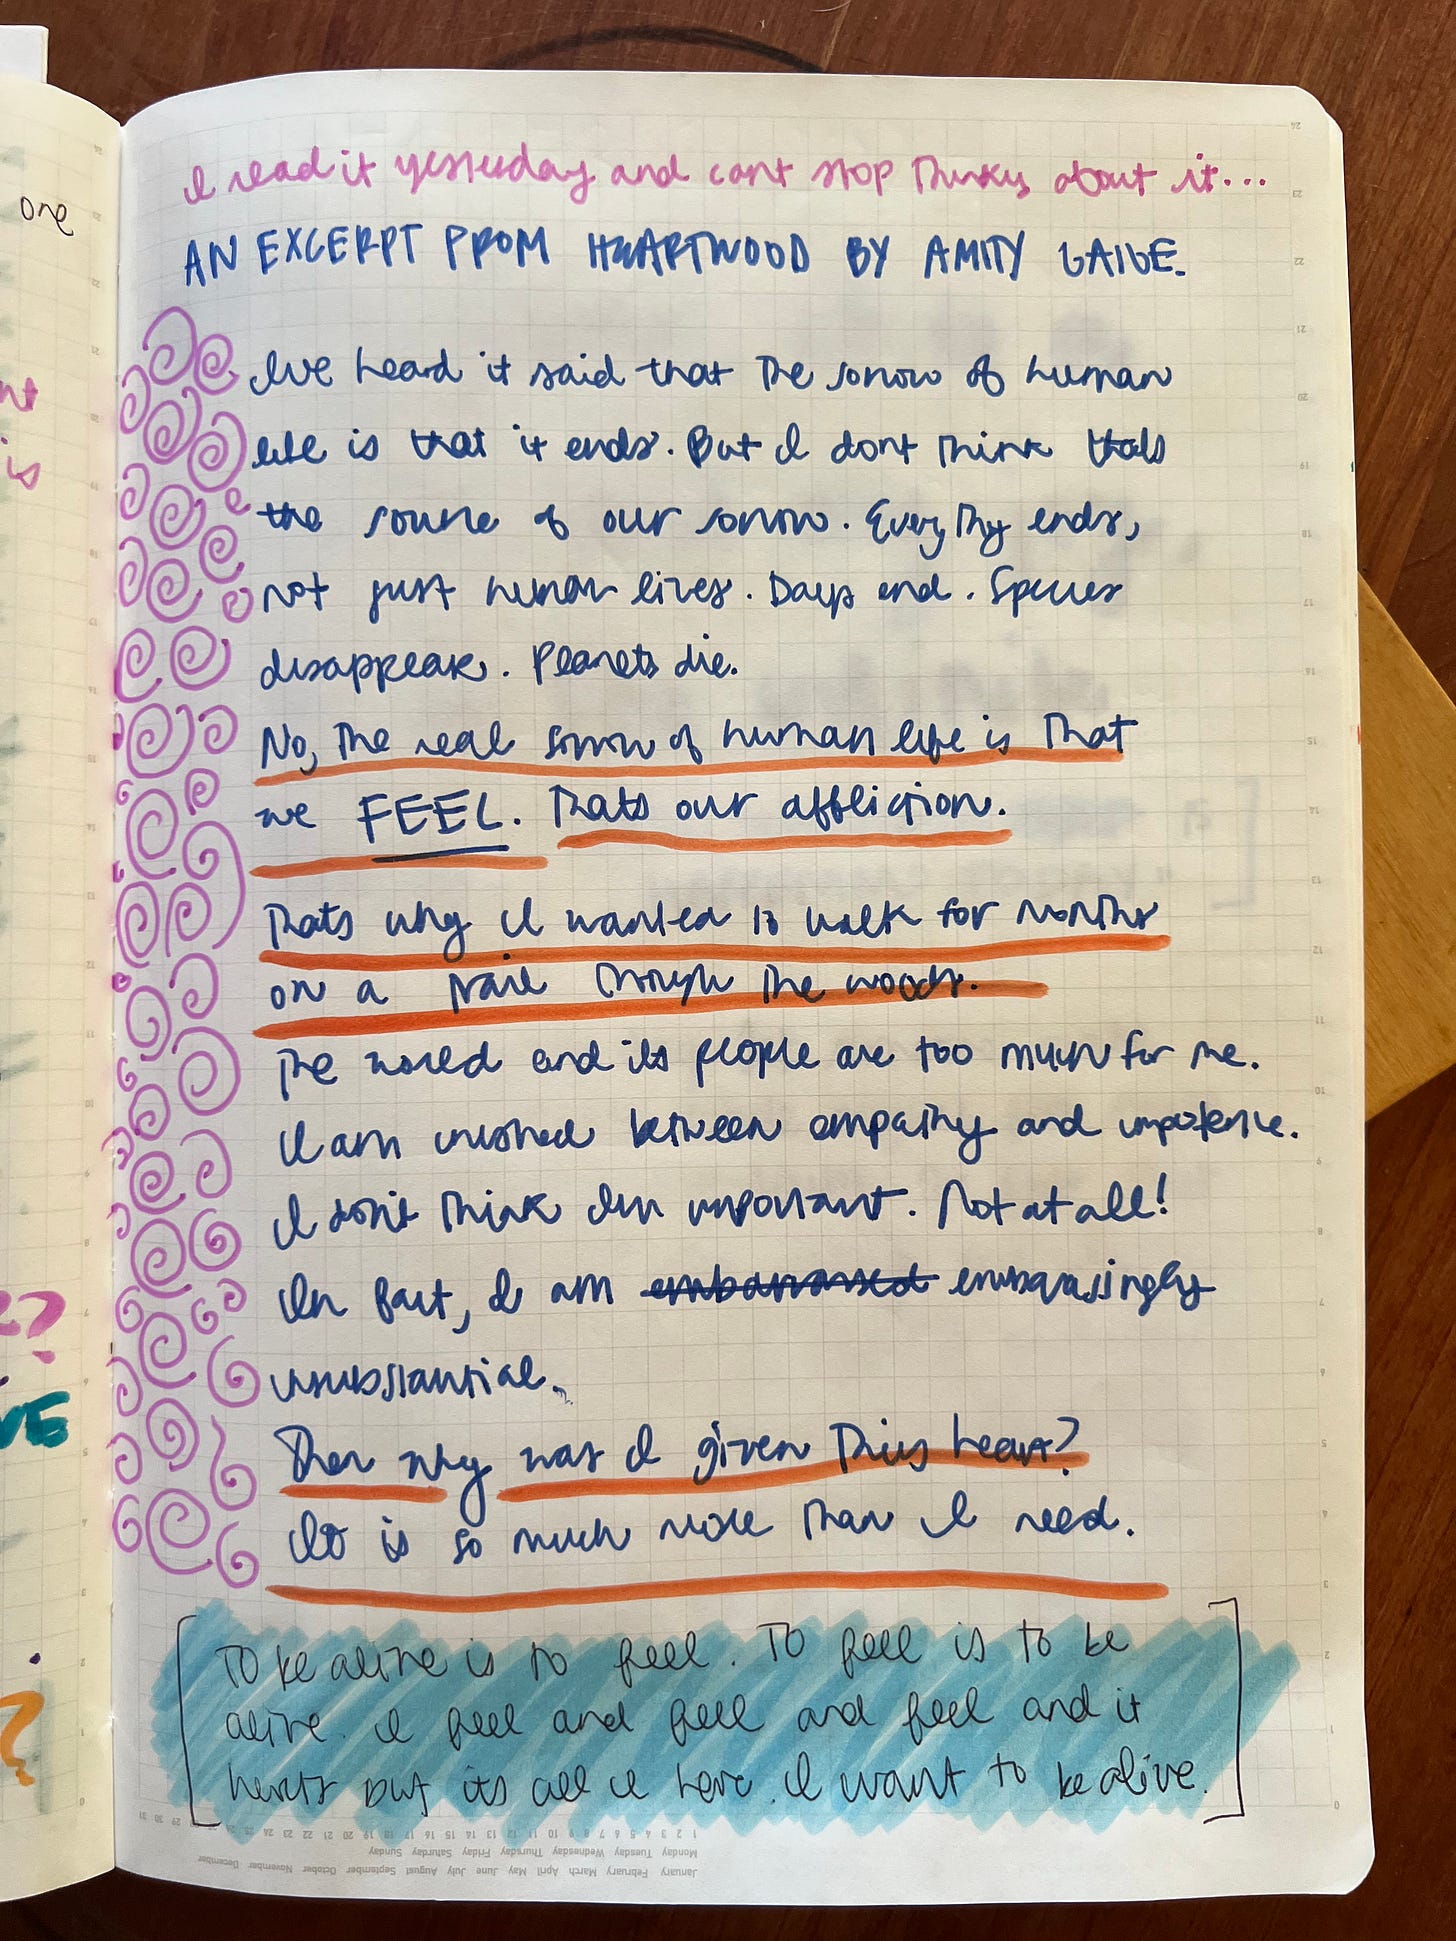 I read it yesterday and cant stop thinking about it...
AN EXCERPT FROM HEARTWOOD BY AMITY GAIGE.
Ive heard it said that the sorrow of human
life is that it ends. But I dont think thats
the source of our sorrow. Everything ends,
not just human lives. Days end. Species
disappear. Planets die.
No, the real sorrow of human life is that
we FEEL. Thats our affliction.
Thats why I wanted to walk for months
on a trail through the woods.
The world and its people are too much for me.
I am crushed between empathy and impotence.
I don't think Im important. Not at all!
In fact, I am embarrassed embarrasingly
unsubstantial.
Then why was I given this heart?
It is so much more than I need.
To be alive is to feel. To feel is to be
alive. I feel and feel and feel and it
hurts but its all I have. I want to be alive.
one
is
?
VE
?
24
23
22
21
20
19
18
17
16
15
14
13
12
11
10
9
8
7
6
5
4
3
2
1
0
1 2 3 4 5 6 7 8 9 10 11 12 13 14 15 16 17 18 19 20 21 22 23 24 25 26 27 28 29 30 31
Monday Tuesday Wednesday Thursday Friday Saturday Sunday
January February March April May June July August September October November December